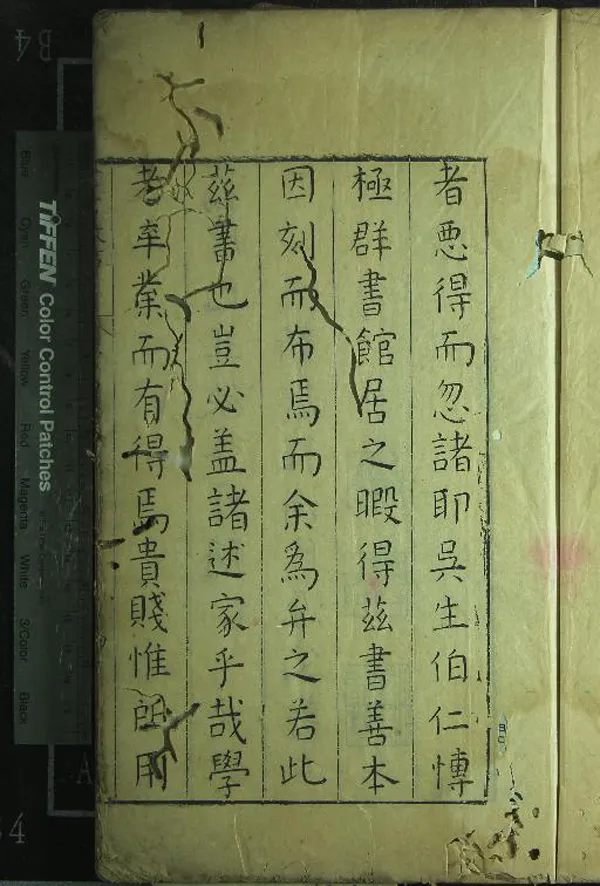 者悪得而忽諸耶吳生伯仁慱
極群書館居之暇得茲書善本
因刻而布焉而余為弁之若此
茲書也豈必盖諸述家乎哉學
者率業而有得焉貴賤惟所用
TIFFEN Color Control Patches
Blue Cyan Green Yellow Red Magenta White 3/Color Black
B4
A